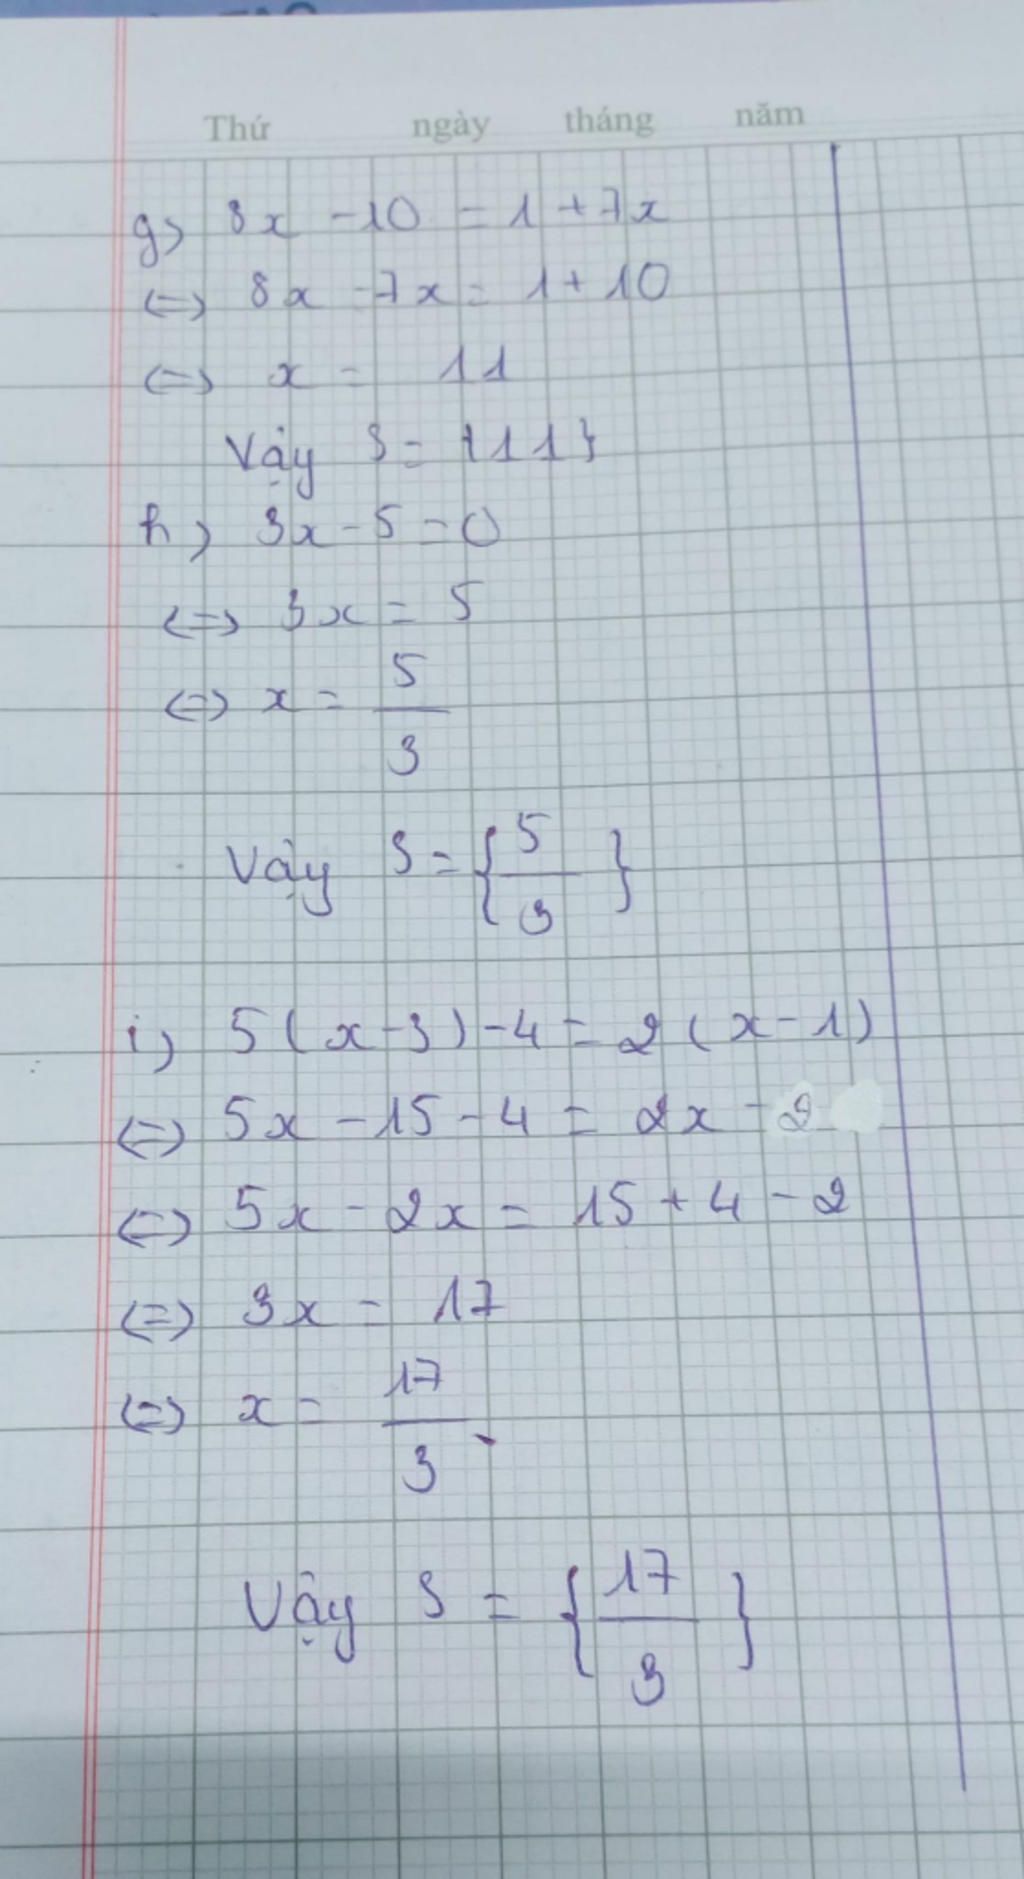 Thứ ngày tháng năm
g) 8x - 10 = 1 + 7x
<=> 8x - 7x = 1 + 10
<=> x = 11
Vậy S = {11}
h) 3x - 5 = 0
<=> 3x = 5
<=> x = 5/3
Vậy S = {5/3}
i) 5(x - 3) - 4 = 2(x - 1)
<=> 5x - 15 - 4 = 2x - 2
<=> 5x - 2x = 15 + 4 - 2
<=> 3x = 17
<=> x = 17/3
Vậy S = {17/3}